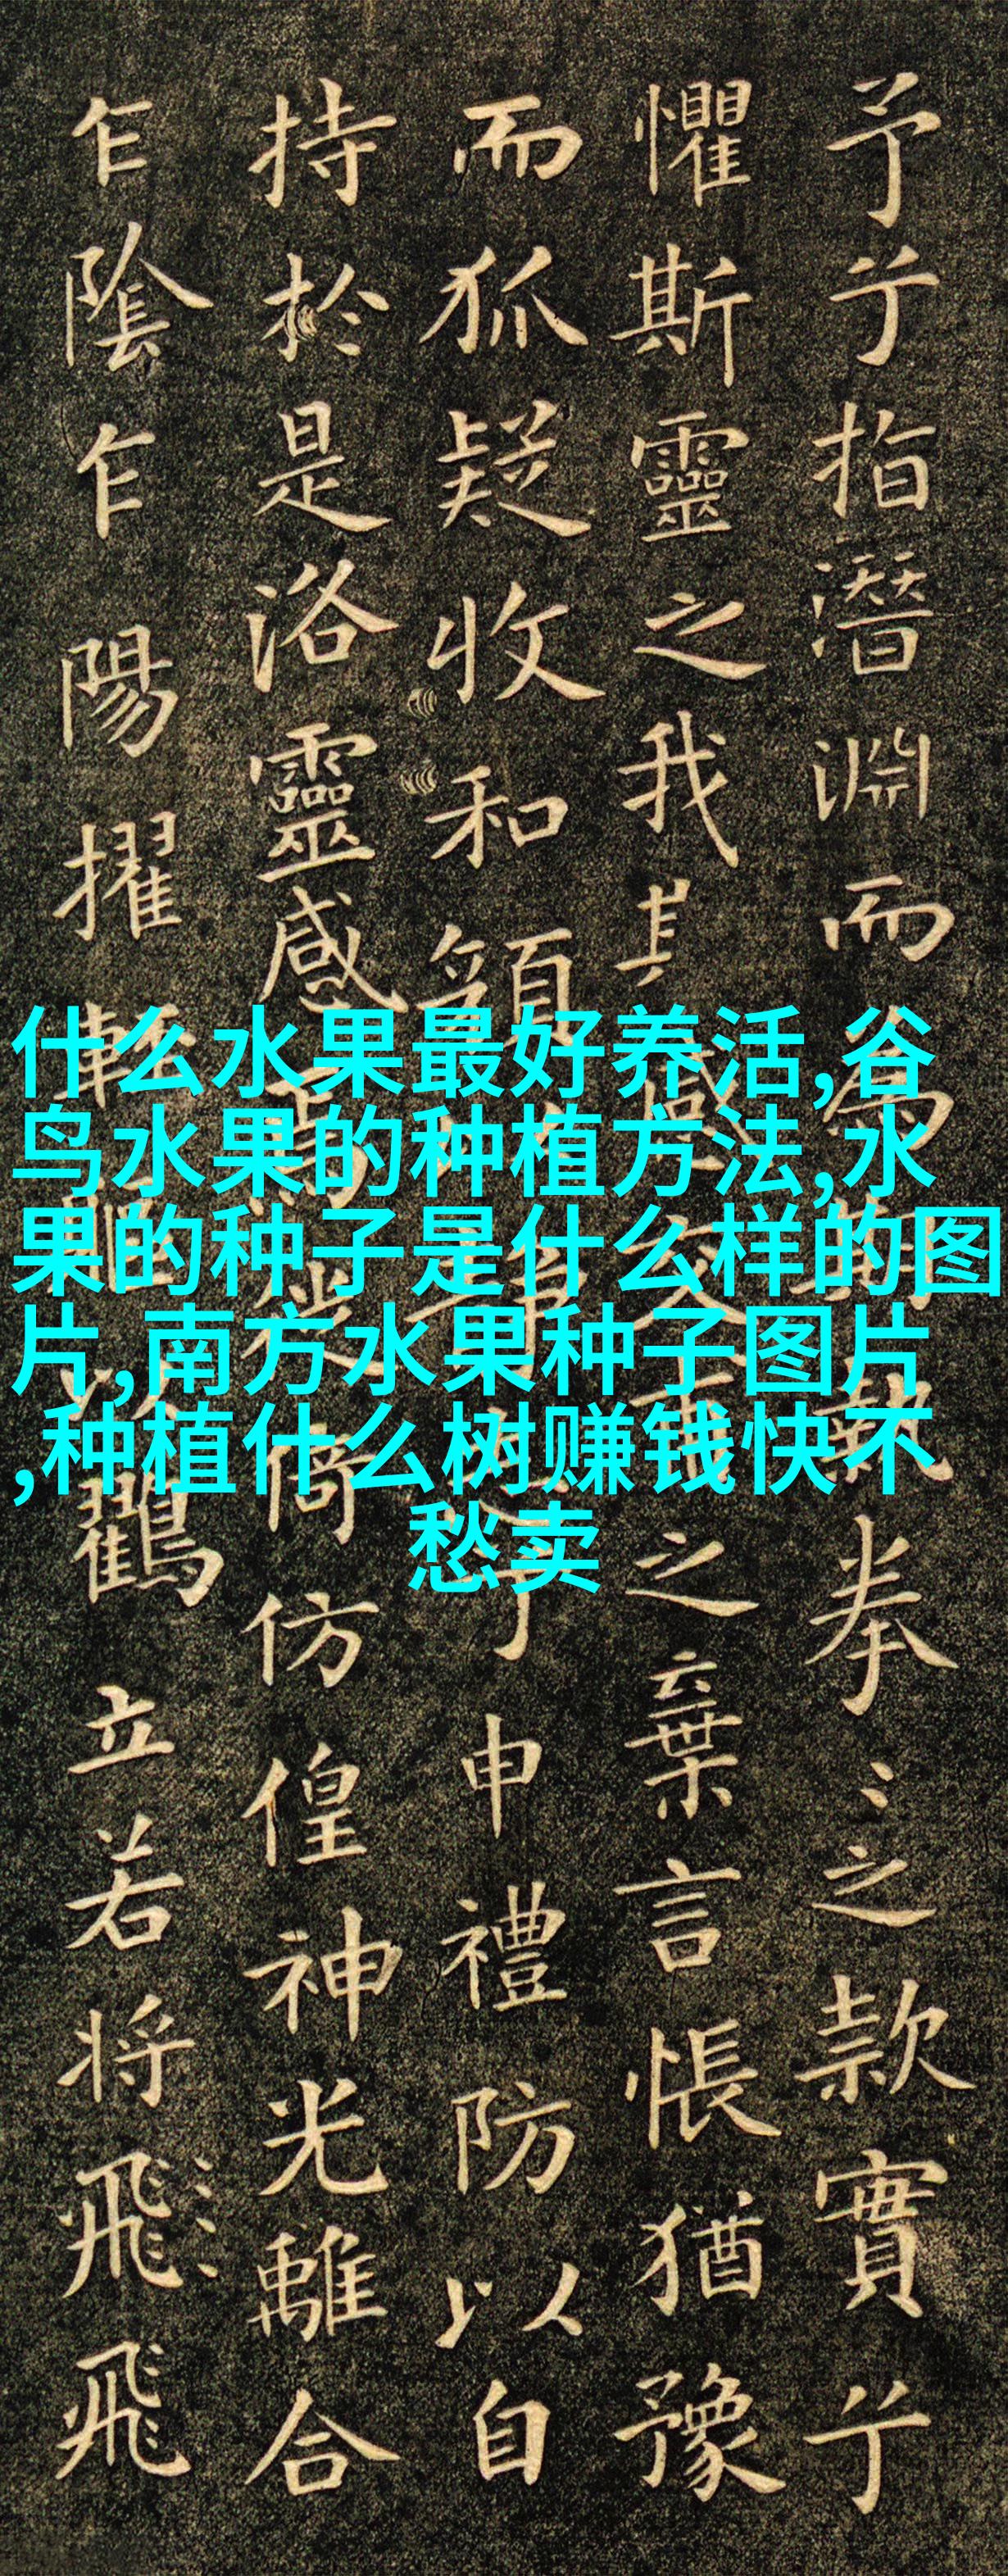 予兮指潛淵而為執拳〻之款實兮
懼斯靈之我感交之棄言悵猶豫
而狐疑收和顏兮申禮防以自
持於是洛靈感焉徙倚仿偟神光離合
乍陰乍陽擢輕軀以鶴立若將飛飛
什么水果最好养活,谷
鸟水果的种植方法,水
果的种子是什么样的图
片,南方水果种子图片
,种植什么树赚钱快不
愁卖